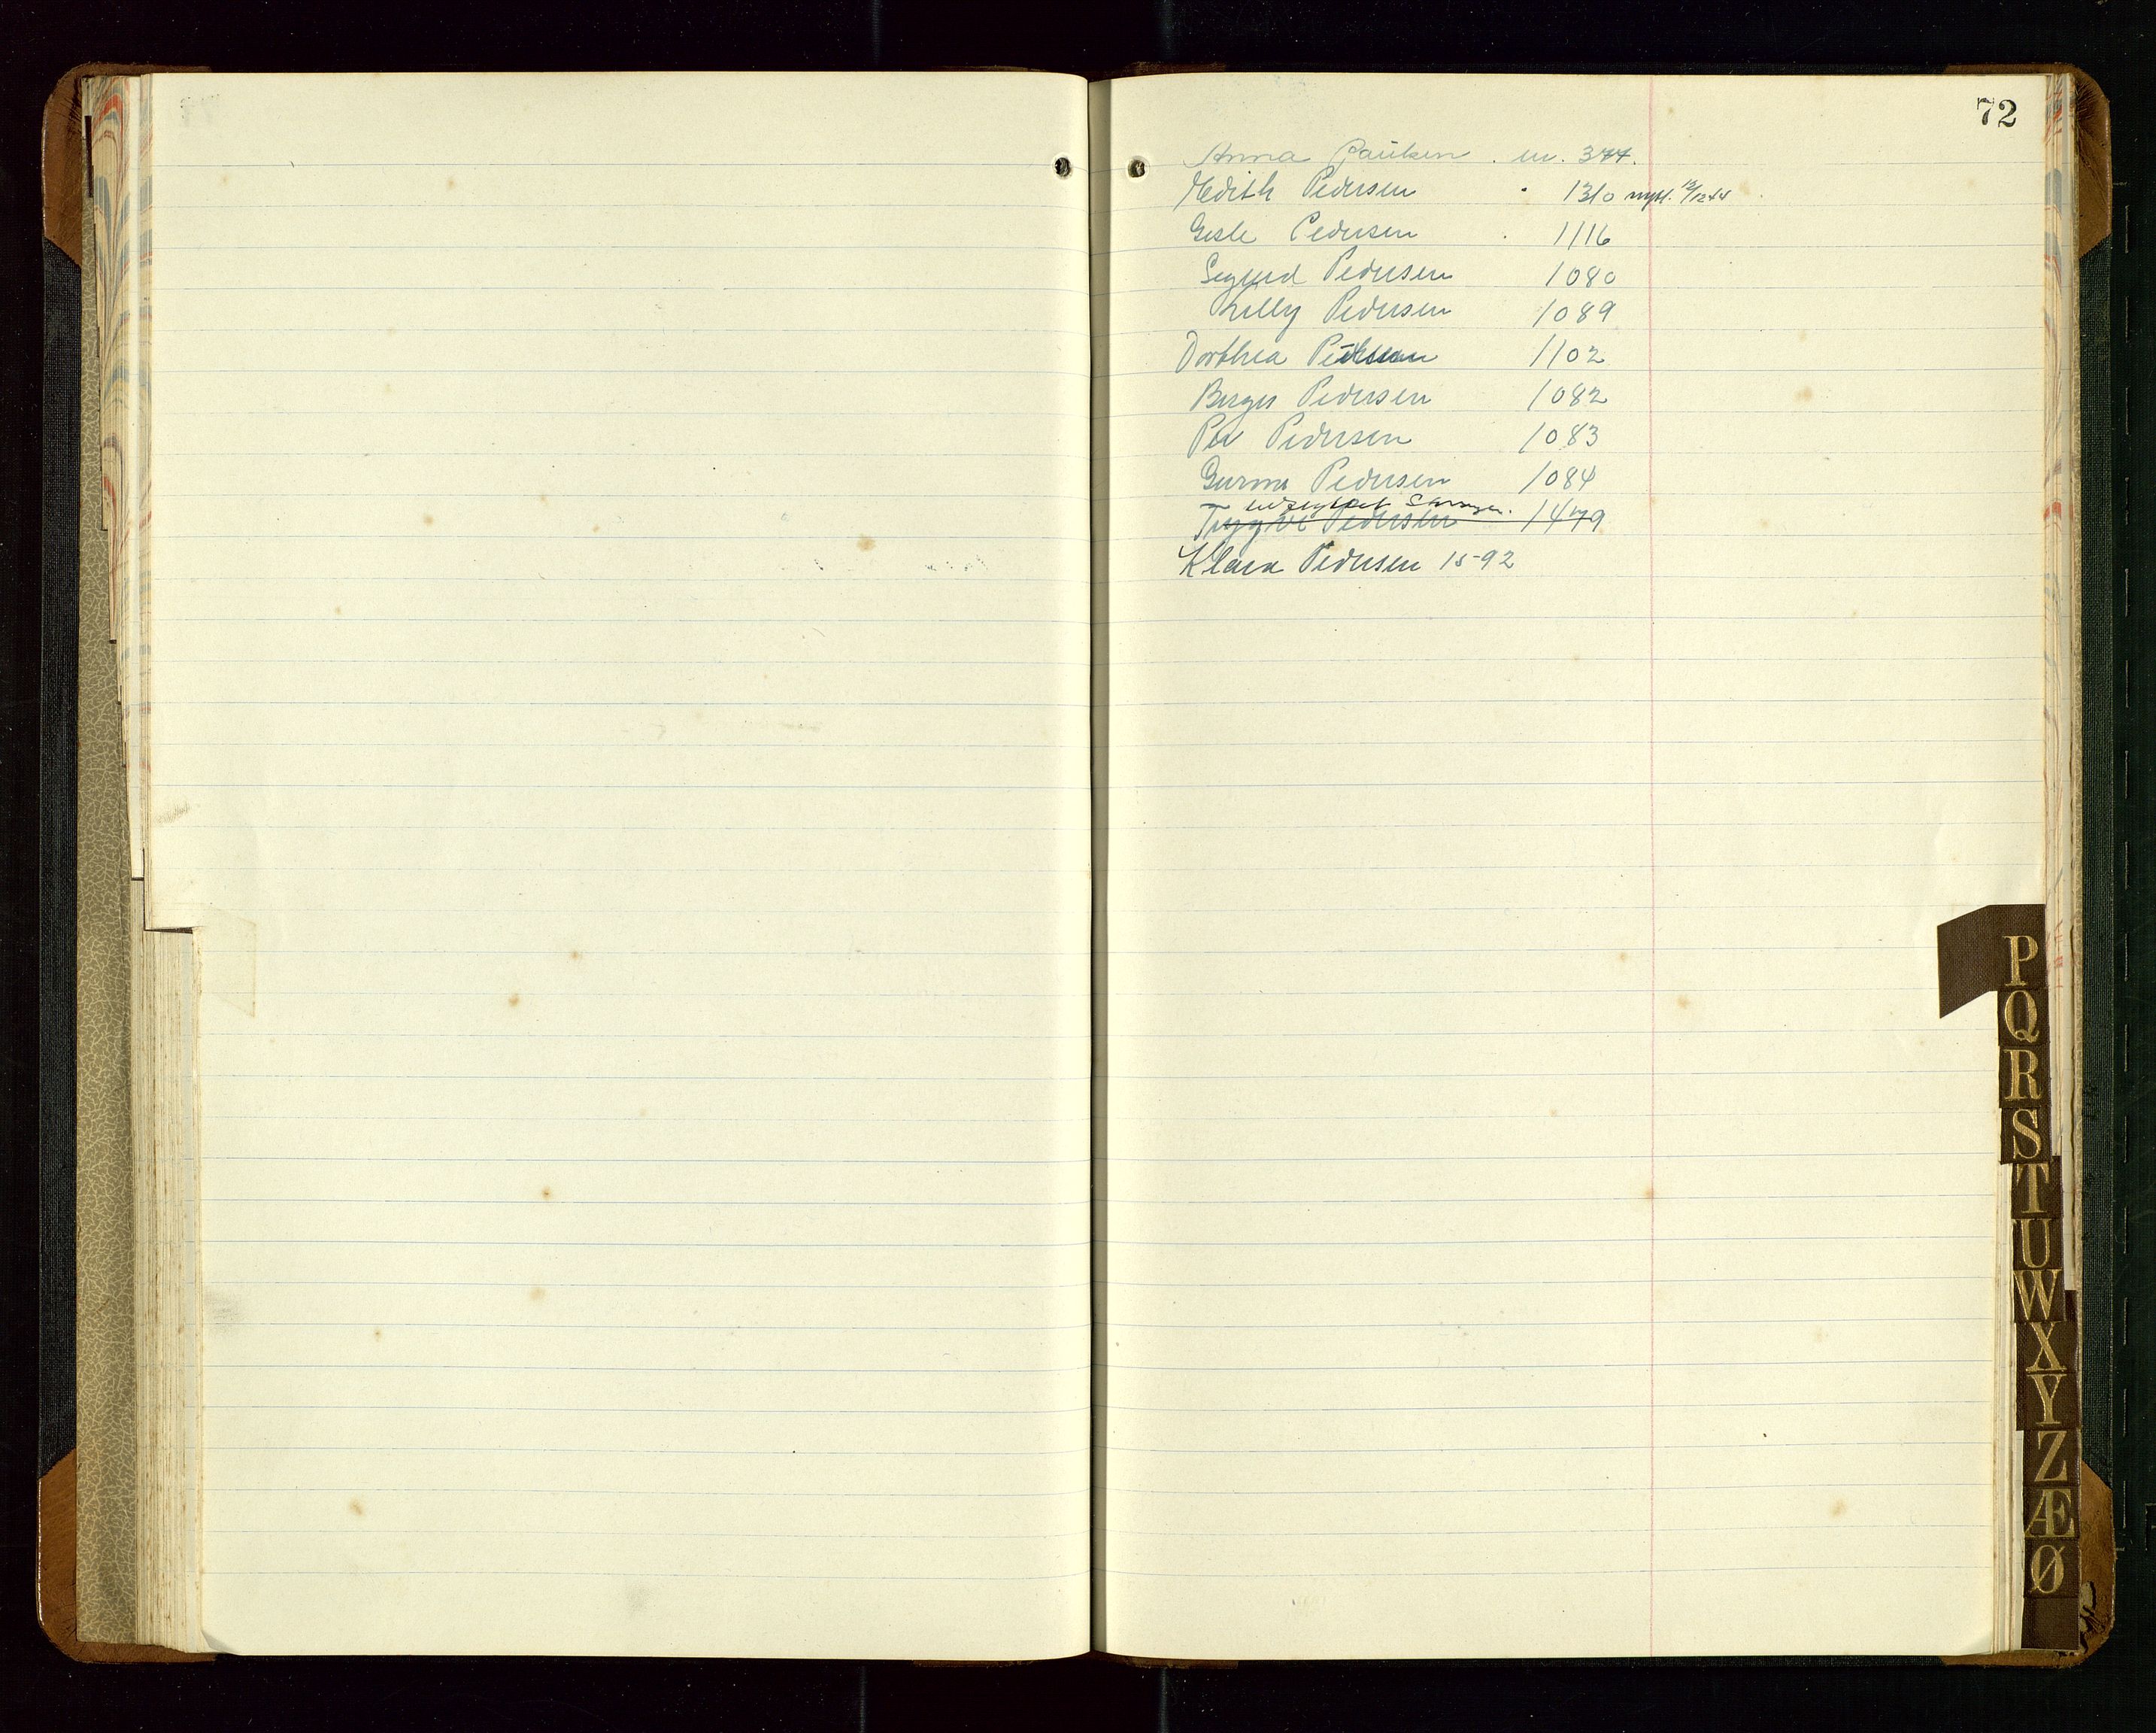 72
Anna Paulsen . m. 377.
Edith Pedersen . 1310 nytt. 13/12 44
Gisle Pedersen . 1116
Sigurd Pedersen 1080
Lilly Pedersen 1089
Dorthea Pedersen 1102
Birger Pedersen 1082
Per Pedersen 1083
Gunna Pedersen 1084
Trygve Pedersen 1479
Klara Pedersen 15-92
P
Q
R
S
T
U
W
X
Y
Z
Æ
Ø